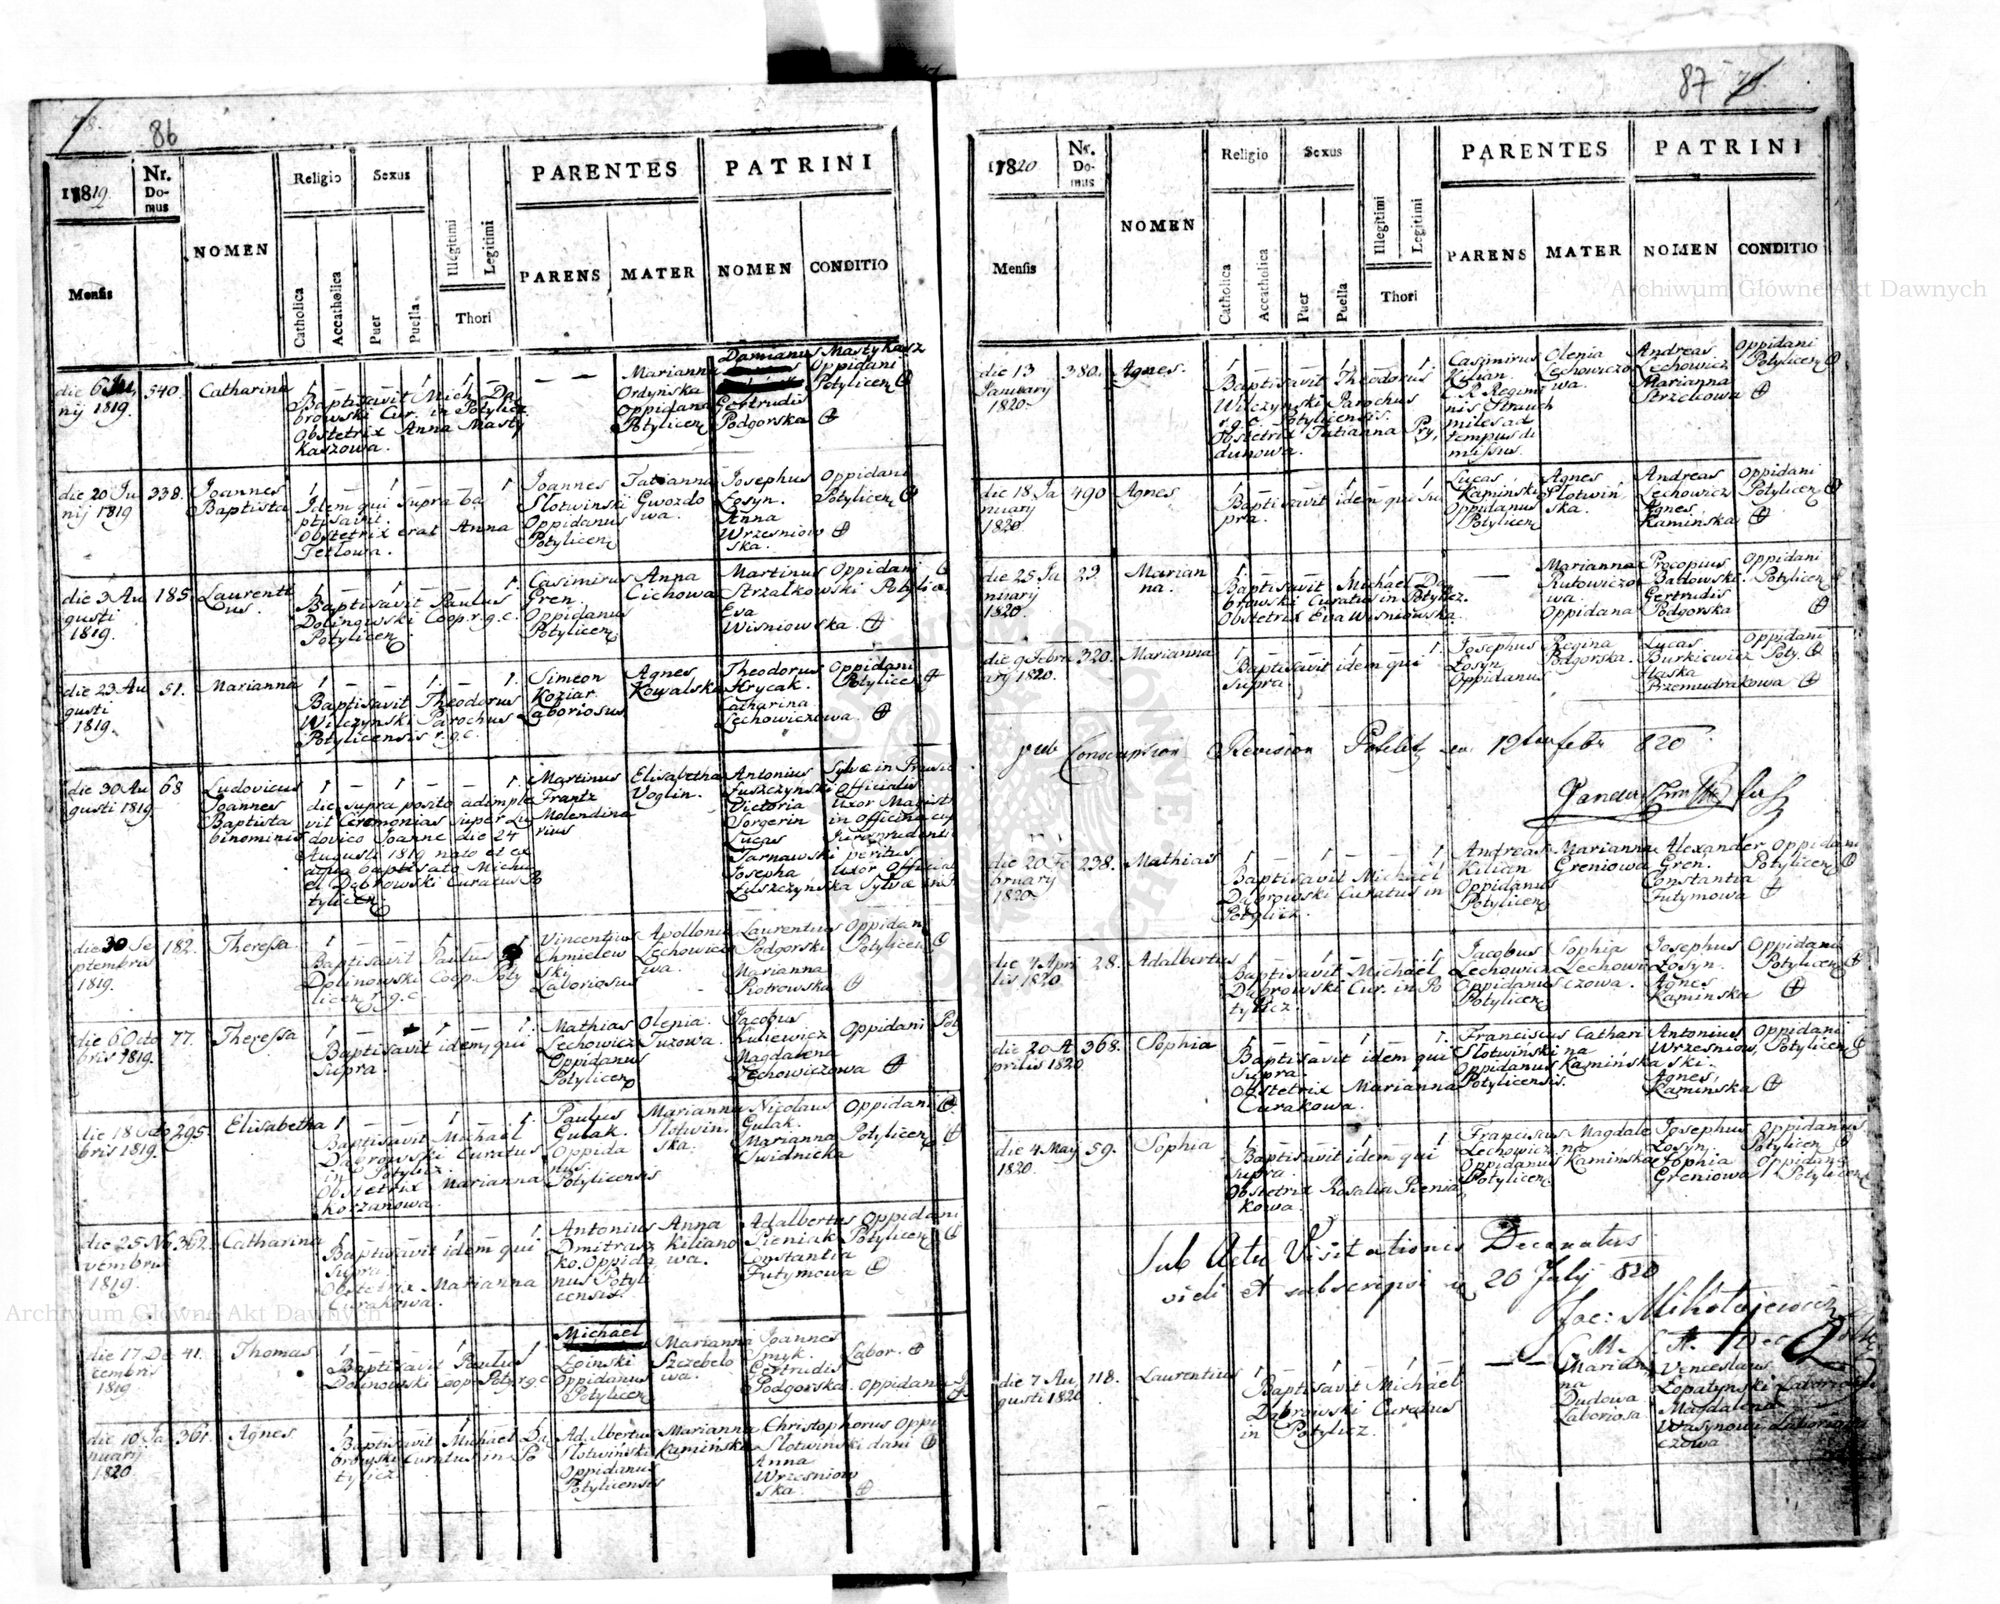 78.
86
1819
Nr. Domus
NOMEN
Religio
Sexus
Illegitimi
Legitimi
PARENTES
PATRINI
Mensis
Catholica
Accatholica
Puer
Puella
Thori
PARENS
MATER
NOMEN
CONDITIO
die 6 Ju
nij 1819.
540.
Catharina
1 — — 1 1 —
Baptisavit Mich. Dą
browski Cur. in Potylicz
Obstetrix Anna Masty
kaszowa.
— —
Marianna
Ordyńska
Oppidana
Potylicen
Damianus Mastykasz
Gertrudis
Podgorska
Oppidani
Potylicen
die 20 Ju
nij 1819
338.
Joannes
Baptista
1 — 1 — — 1
Idem qui supra ba
ptisavit.
Obstetrix erat Anna
Tetlowa.
Joannes
Słotwinski
Oppidanus
Potylicen
Tatianna
Gwozdo
wa.
Josephus
Łosyn.
Anna
Wrzesniow
ska.
Oppidani
Potylicen
die 3 Au
gusti
1819.
185.
Laurenti
us.
1 — 1 — — 1
Baptisavit Paulus
Dolinowski Coop. r.g.c.
Potylicen
Casimirus
Gren.
Oppidanus
Potylicen
Anna
Cichowa
Martinus
Strzałkowski
Eva
Wisniowska.
Oppidani
Potylice
die 23 Au
gusti
1819.
51.
Marianna
1 — — 1 — 1.
Baptisavit Theodorus
Wilczynski Parochus
Potylicensis r.g.c.
Simeon
Koziar.
Laboriosus
Agnes
Kowalska
Theodorus
Hrycak.
Catharina
Lechowiczowa.
Oppidani
Potylicen
die 30 Au
gusti 1819.
68
Ludovicus
Joannes
Baptista
binominis
1 — 1 — — 1.
die supra posito adimple
vit Ceremonias super Lu
dovico Joanne die 24
Augusti 1819 nato et ex
aqua baptisato Micha
el Dąbrowski Curatus Po
tylicen
Martinus
Frantz
Molendina
rius
Elisabetha
Voglin.
Antonius
Łuszczyński
Victoria
Sorgerin
Lucas
Tarnawski
Josepha
Officialis
Uxor Magist
in officina
Jurisprudenti
peritus
Uxor Officia
Sylvæ in
die 30 Se
ptembris
1819.
182.
Theressa
1 — — 1 —
Baptisavit Paulus
Dolinowski Coop. Poty
licen r.g.c.
Vincentius
Chmielew
ski
Laboriosus
Apollonia
Lechowico
wa.
Laurentius
Podgorski
Marianna
Piotrowska
Oppidani
Potylicen
die 6 Octo
bris 1819.
77.
Theressa
1 — — 1 — 1.
Baptisavit idem, qui
Supra.
Mathias
Lechowicz
Oppidanus
Potylicen
Olenia.
Tuzowa.
Jacobus
Kuliewicz
Magdalena
Lechowiczowa
Oppidani Pot
die 18 Octo
bris 1819.
295.
Elisabetha
1 — — 1 — 1.
Baptisavit Michaël
Dąbrowski Curatus
in Potylicz.
Obstetrix Marianna
Korzanowa.
Paulus
Gulak.
Oppida
nus.
Potylicensis
Marianna
Słotwin.
ska.
Nicolaus
Gulak.
Marianna
Swidnicka
Oppidani
Potylicen
die 25 No
vembris
1819.
362.
Catharina
1 — — 1 — 1
Baptisavit idem qui
Supra.
Obstetrix Marianna
Curakowa.
Antonius
Dmitrasz
ko. Oppida
nus Potyli
censis.
Anna
Kiliano
wa.
Adalbertus
Pieniak
Constantia
Futymowa
Oppidani
Potylicen
die 17 De
cembris
1819.
41.
Thomas
1 — 1 — — 1
Baptisavit Paulus
Dolinowski Coop. Poty. r.g.c.
Michaël
Łoinski
Oppidanus
Potylicen
Marianna
Szczebelo
wa.
Joannes
Smyk.
Gertrudis
Podgorska.
Labor.
Oppidana
die 10 Ja
nuarij
1820
361.
Agnes
Baptisavit Michaël Dą
browski Curatus in Po
tylicz.
Adalbertus
Słotwiński
Oppidanus
Potylicensis
Marianna
Kamińska
Christophorus
Słotwinski
Anna
Wrzesniow
ska.
Oppi
dani
87
1820
Nr. Domus
NOMEN
Religio
Sexus
Illegitimi
Legitimi
PARENTES
PATRINI
Mensis
Catholica
Accatholica
Puer
Puella
Thori
PARENS
MATER
NOMEN
CONDITIO
die 13
January
1820.
380.
Agnes.
Baptisavit Theodorus
Wilczynski Parochus
r.g.c. Potylicensis.
Obstetrix Tatianna Pry,
dunowa.
Casimirus
Kilian.
C.R. Regimi
nis Strauch
miles ad
tempus di
missus.
Olenia
Lechowiczo
wa.
Andreas
Lechowicz
Marianna
Strzelcowa
Oppidani
Potylicen
die 18 Ja
nuary
1820.
490
Agnes
Baptisavit idem qui Su
pra.
Lucas
Kamiński
Oppidanus
Potylicen
Agnes
Słotwiń
ska.
Andreas
Lechowicz
Agnes
Kamińska
Oppidani
Potylicen
die 25 Ja
nuary
1820.
29.
Marian
na.
Baptisavit Michaël Dą
browski Curatus in Potylicz.
Obstetrix Eva Wisniowska.
—
Marianna
Rutowiczo
wa.
Oppidana
Procopius
Batłowski.
Gertrudis
Podgorska
Oppidani
Potylicen
die 9 Febru
ary 1820.
320.
Marianna
Baptisavit idem qui
Supra.
Josephus
Łosyn
Oppidanus
Regina
Podgorska.
Lucas
Burkiewicz
Haska
Przemudrakowa
Oppidani
Poty.
Conscription Revision
820
die 20 Fe
bruary
1820
238.
Mathias
Baptisavit Michaël
Dąbrowski Curatus in
Potylicz.
Andreas
Kilian
Oppidanus
Potylicen
Marianna
Greniowa
Alexander
Gren.
Constantia
Futymowa
Oppidani
Potylicen
die 4 Apri
lis 1820
28.
Adalbertus
Baptisavit Michaël
Dąbrowski Cur. in Po
tylicz.
Jacobus
Lechowicz
Oppidanus
Potylicen
Sophia
Lechowi
czowa.
Josephus
Łosyn.
Agnes
Kaminska
Oppidani
Potylicen
die 20 A
prilis 1820
368.
Sophia
Baptisavit idem qui
Supra.
Obstetrix Marianna
Curakowa.
Franciscus
Słotwiński
Oppidanus
Potylicensis.
Cathari
na
Kamińska
Antonius
Wrzesniow,
ski.
Agnes
Kamińska
Oppidani
Potylicen
die 4 May
1820.
59.
Sophia
Baptisavit idem qui
Supra.
Obstetrix Rosalia Pienia,
kowa.
Franciscus
Lechowicz
Oppidanus
Potylicen
Magdale
na
Kaminska
Josephus
Łosyn
Sophia
Greniowa
Oppidanus.
Potylicen
Oppidana
Potylicen
Sub Actu Visitationis Decanatus
vidi et subscripsi 20 July 820
Jac: Mikołajewicz
die 7 Au
gusti 1820
118.
Laurentius
Baptisavit Michaël
Dąbrowski Curatus
in Potylicz.
— —
Marian
na
Dudowa
Laboriosa
Venceslaus
Łopatynski
Magdalena
Wasynowi
czowa
Laboriosi
Archiwum Główne Akt Dawnych
Archiwum Główne Akt Dawnych
ARCHIWUM GŁÓWNE AKT DAWNYCH